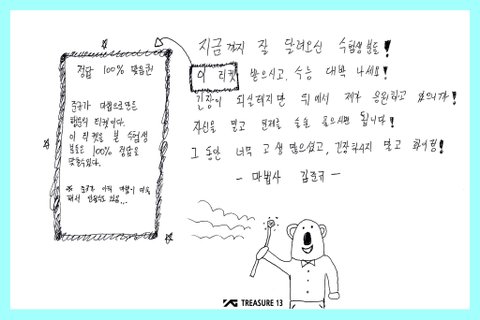 정답 100% 맞음권
준규가 마법으로 만든
행운의 티켓이다.
이 티켓을 본 수험생
분들은 100% 정답을
맞출 수 있다.
지금까지 잘 달려오신 수험생 분들!
이 티켓 받으시고, 수능 대박 나세요!
긴장이 되실테지만 뒤에서 제가 응원하고 있으니까!
자신을 믿고 문제를 술술 풀으시면 됩니다!
그 동안 너무 고생 많으셨고, 긴장하지 말고 화이팅!
- 마법사 김준규 -
YG TREASURE 13